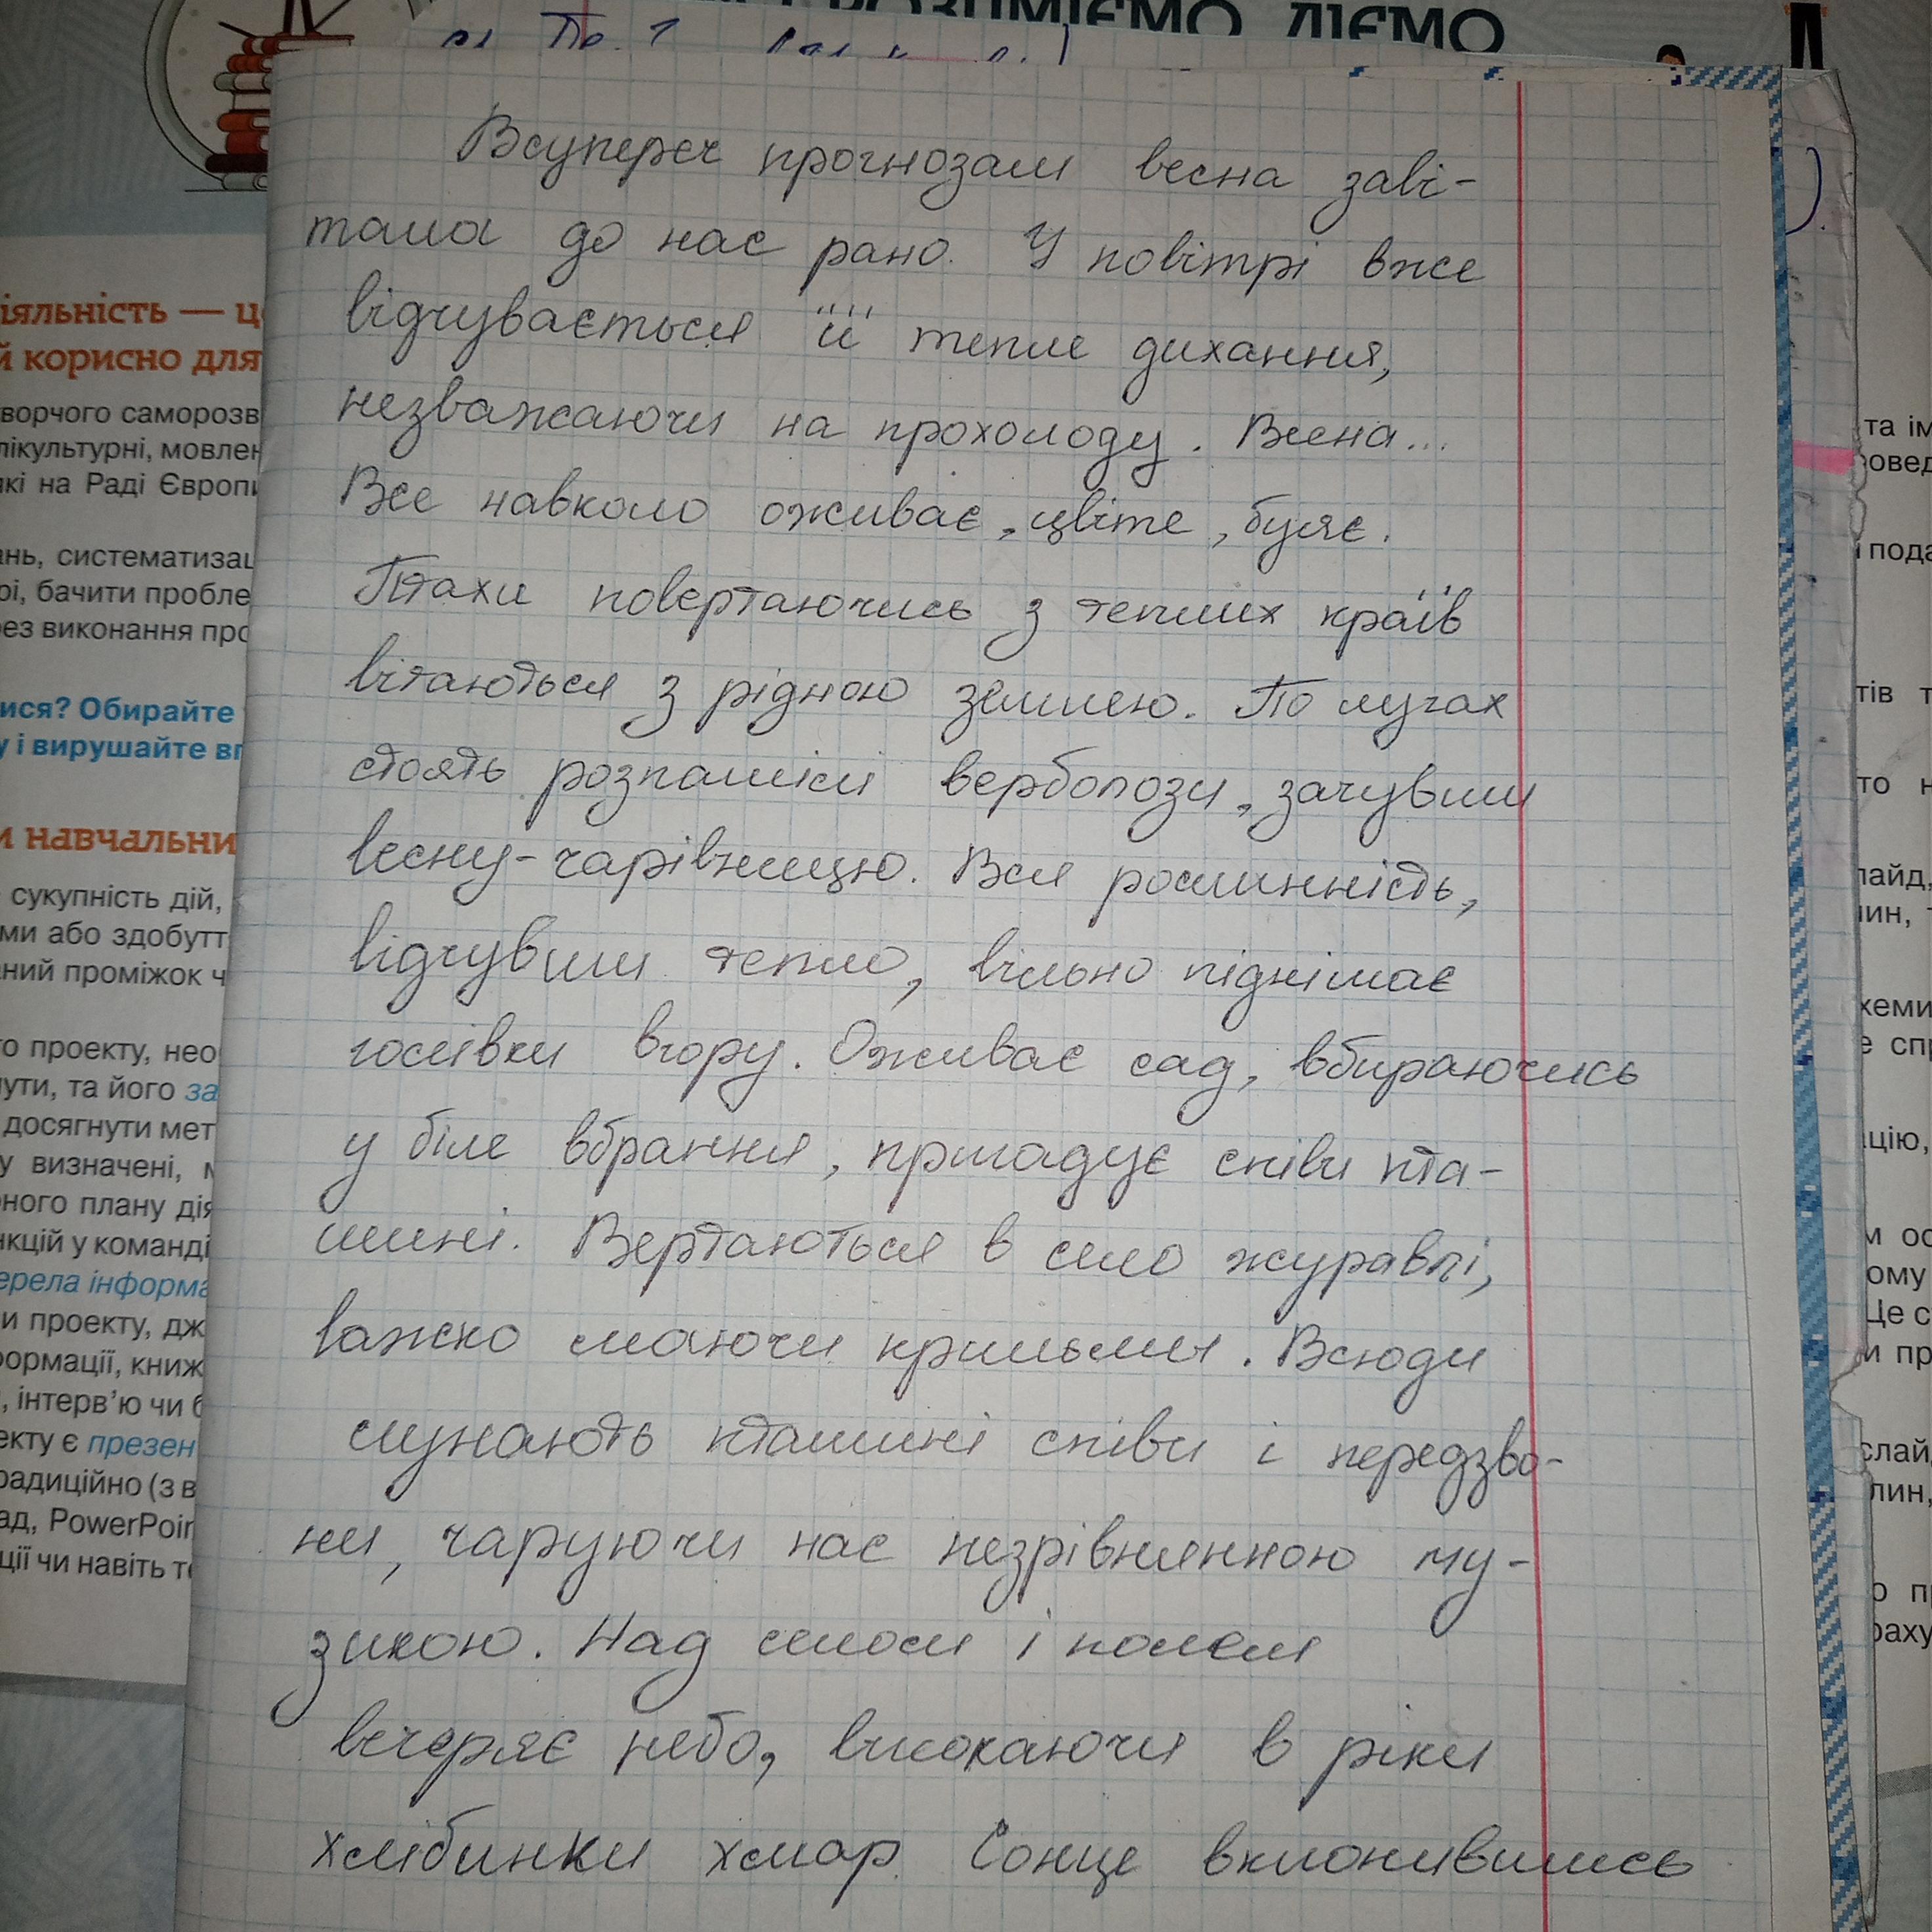 РОЗУМІЄМО, ДІЄМО
Всупереч прогнозам весна заві-
тала до нас рано. У повітрі вже
відчувається її тепле дихання,
незважаючи на прохолоду. Весна...
Все навколо оживає, цвіте, буяє.
Птахи повертаючись з теплих країв
вітаються з рідною землею. По лугах
стоять розпашілі верболози, зачувши
весну-чарівницю. Вся рослинність,
відчувши тепло, вільно піднімає
голівки вгору. Оживає сад, вбираючись
у біле вбрання, пригадує співи пта-
шині. Вертаються в село журавлі,
важко маючи крильми. Всюди
лунають пташині співи і передзво-
ни, чаруючи нас незрівнянною му-
зикою. Над селом і полем
вечеряє небо, вмокаючи в ріки
хлібинки хмар. Сонце вклонившись
іяльність — ц
й корисно для
ворчого саморозв
лікультурні, мовлен
які на Раді Європи
ань, систематизац
рі, бачити пробле
рез виконання про
ися? Обирайте
у і вирушайте вп
и навчальни
сукупність дій,
ми або здобутт
аний проміжок ч
го проекту, нео
ути, та його за
досягнути мет
у визначені, м
рного плану дія
нкцій у команді
ерела інформа
и проекту, дж
формації, книж
, інтерв'ю чи б
екту є презен
радиційно (з в
ад, PowerPoin
ції чи навіть те
та ім
ровед
і пода
тів т
то н
лайд,
хеми
е спр
ацію,
м ос
ому
Це с
и пр
слай
лин,
о п
раху